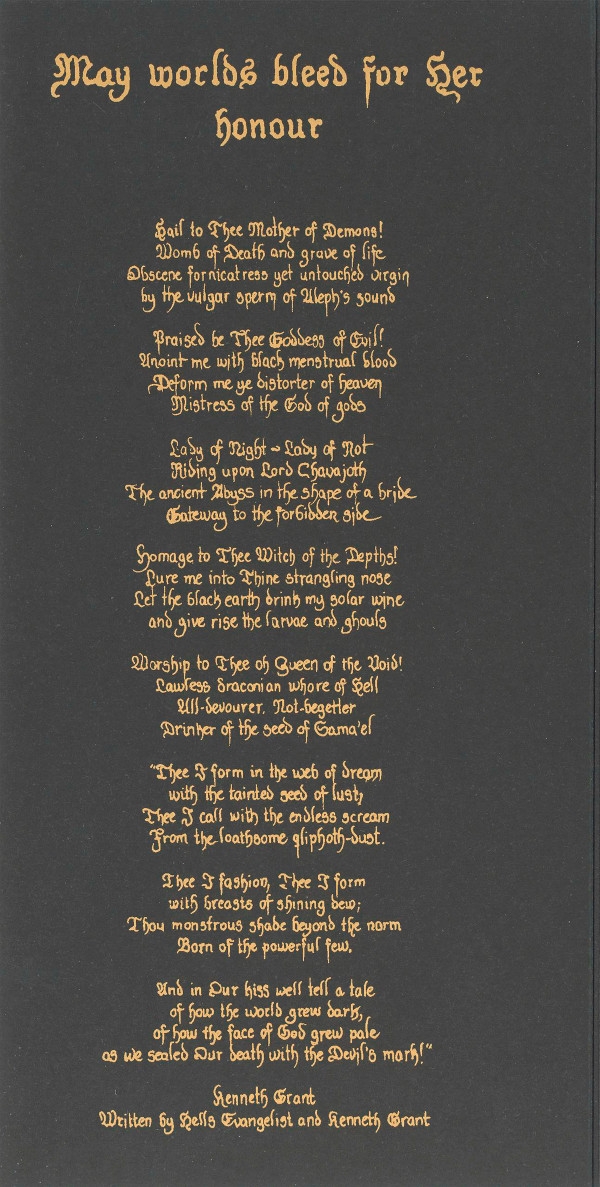 May worlds bleed for Her
honour
Hail to Thee Mother of Demons!
Womb of Death and grave of life
Obscene fornicatress yet untouched virgin
by the vulgar sperm of Aleph's sound
Praised be Thee Goddess of Evil!
Anoint me with black menstrual blood
Deform me ye distorter of heaven
Mistress of the God of gods
Lady of Night ~ Lady of Not
Riding upon Lord Chavajoth
The ancient Abyss in the shape of a bride
Gateway to the forbidden side
Homage to Thee Witch of the Depths!
Lure me into Thine strangling nose
Let the black earth drink my solar wine
and give rise the larvae and ghouls
Worship to Thee oh Queen of the Void!
Lawless draconian whore of Hell
All-devourer. Not-begetter
Drinker of the seed of Sama'el
"Thee I form in the web of dream
with the tainted seed of lust,
Thee I call with the endless scream
From the loathsome qliphoth-dust.
Thee I fashion, Thee I form
with breasts of shining dew;
Thou monstrous shade beyond the norm
Born of the powerful few.
And in Our kiss well tell a tale
of how the world grew dark,
of how the face of God grew pale
as we sealed Our death with the Devil's mark!"
Kenneth Grant
Written by Hells Evangelist and Kenneth Grant